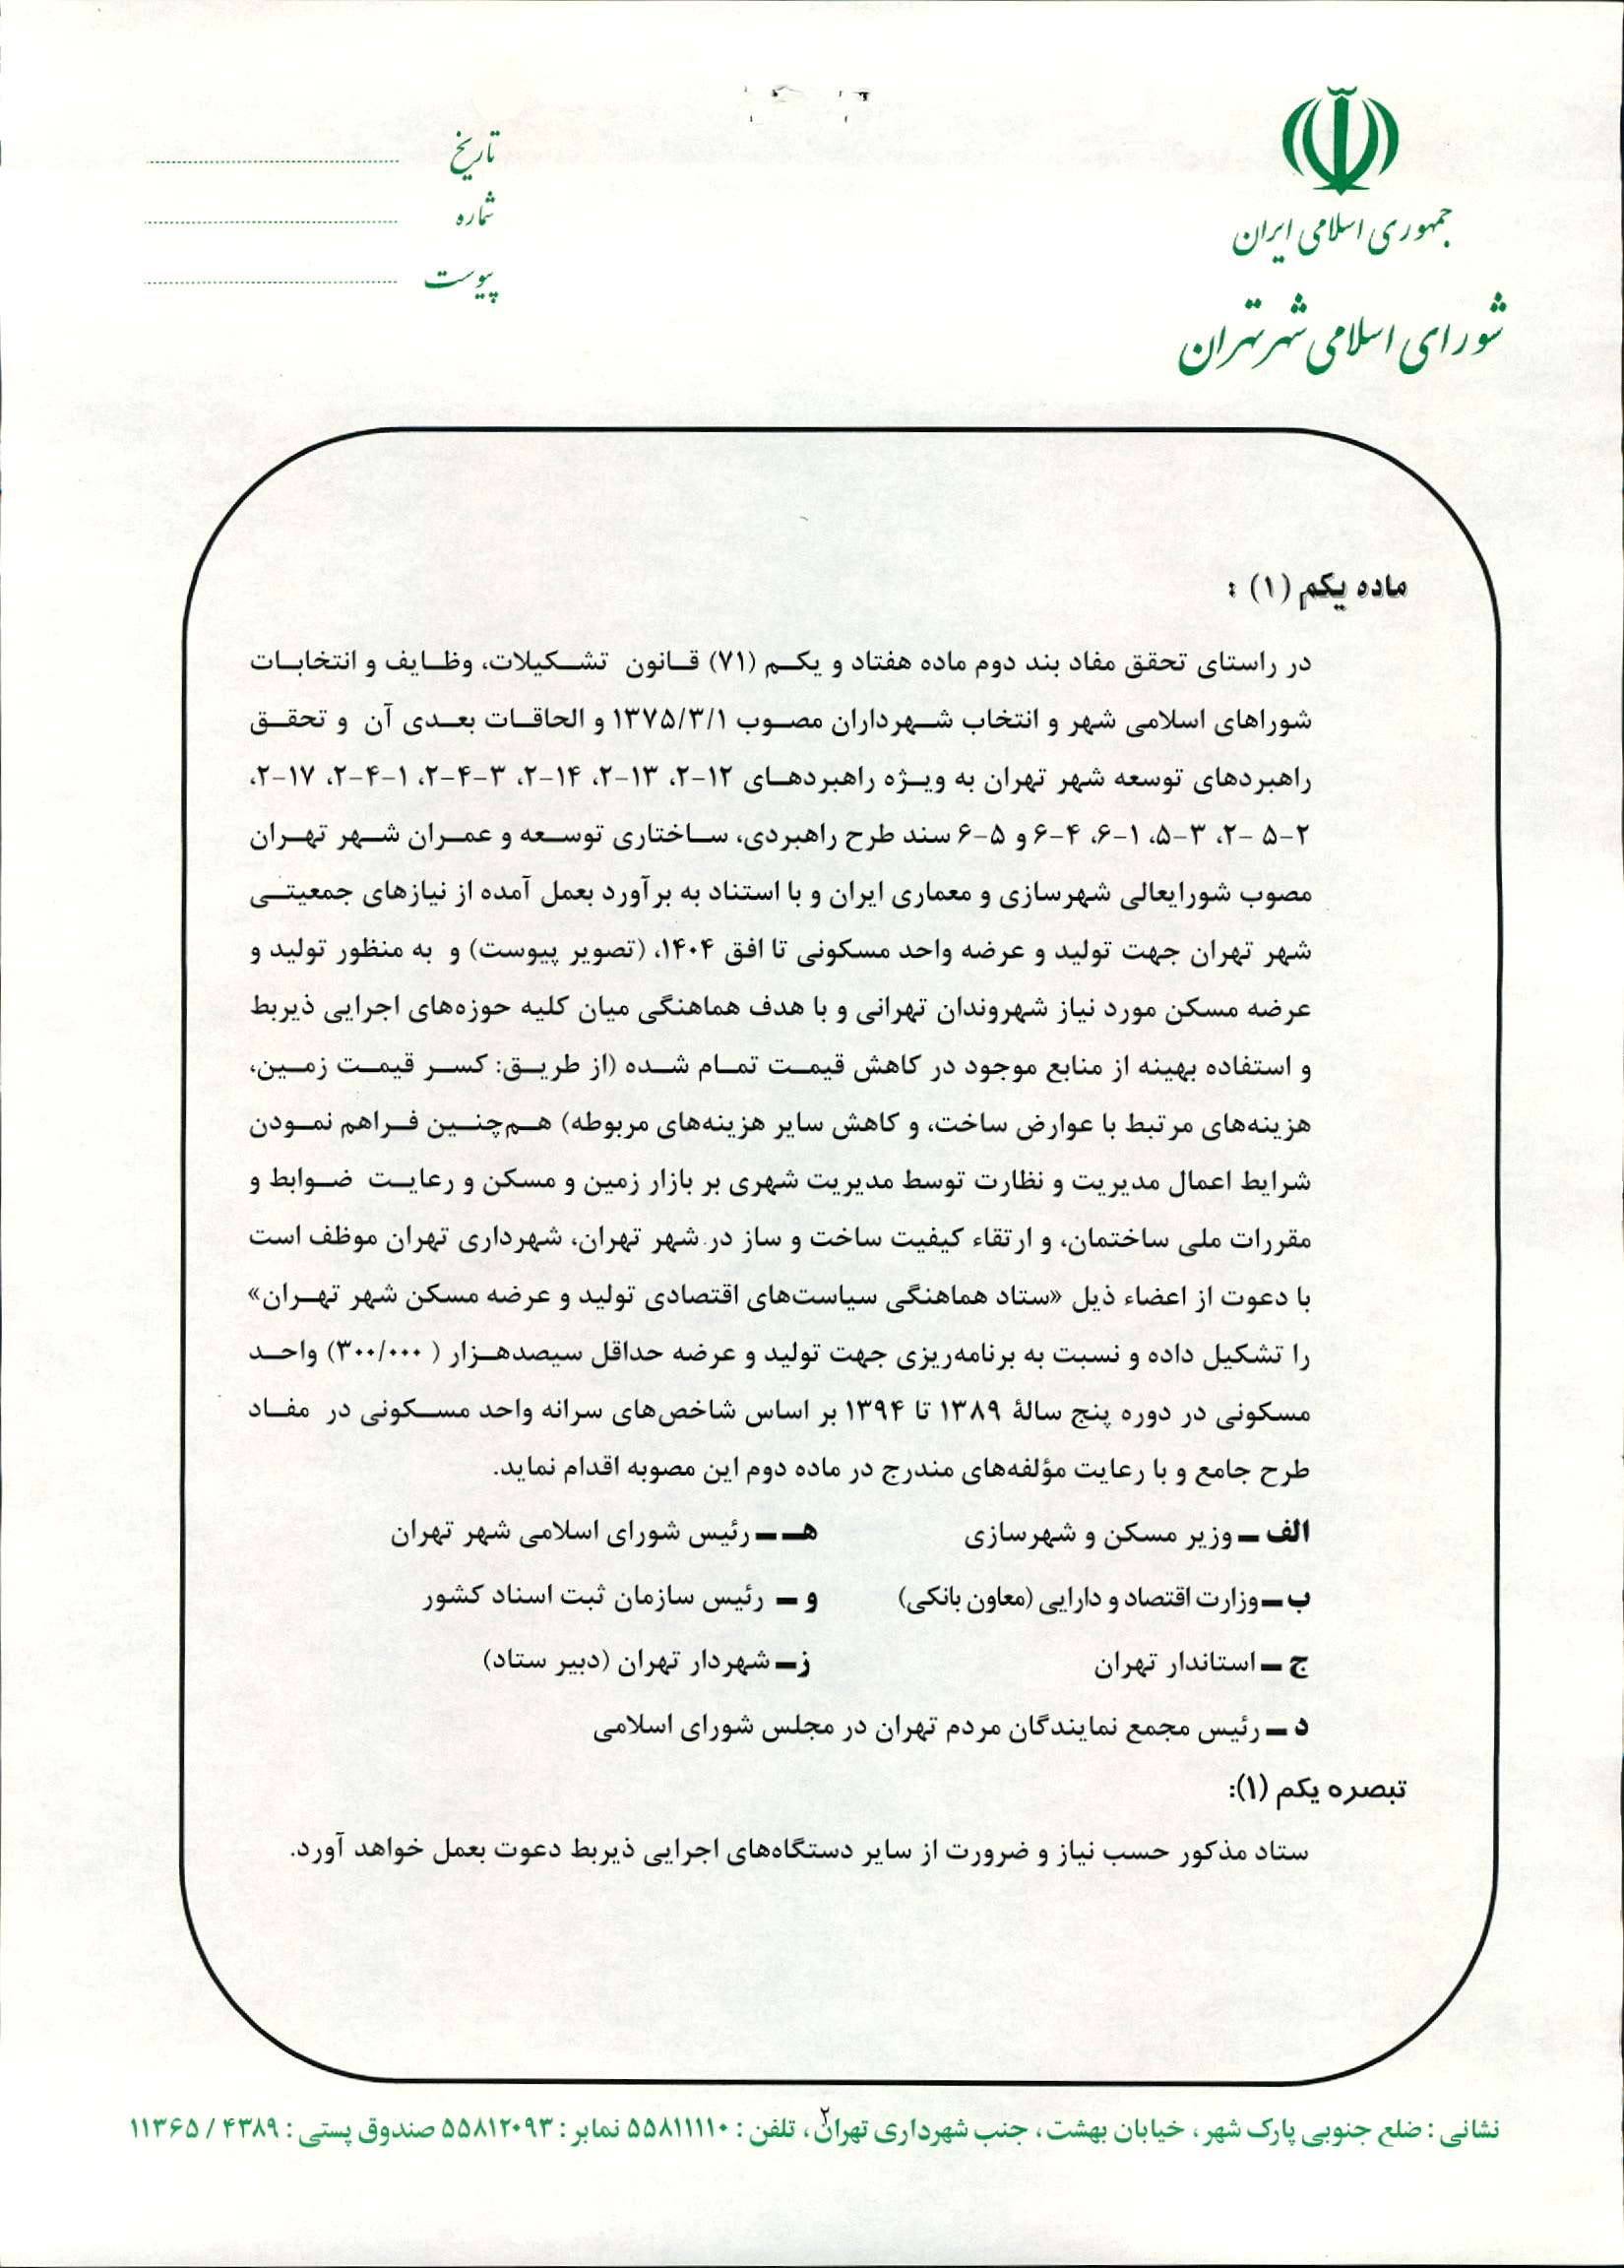 جمهوری اسلامی ایران
شورای اسلامی شهر تهران
تاریخ
شماره
پیوست
ماده یکم (۱) :
در راستای تحقق مفاد بند دوم ماده هفتاد و یکم (۷۱) قانون تشکیلات، وظایف و انتخابات
شوراهای اسلامی شهر و انتخاب شهرداران مصوب ۱۳۷۵/۳/۱ و الحاقات بعدی آن و تحقق
راهبردهای توسعه شهر تهران به ویژه راهبردهای ۱۲-۲، ۱۳-۲، ۱۴-۲، ۳-۴-۲، ۱-۴-۲، ۱۷-۲،
۲-۵ -۲، ۳-۵، ۱-۶، ۴-۶ و ۵-۶ سند طرح راهبردی، ساختاری توسعه و عمران شهر تهران
مصوب شورایعالی شهرسازی و معماری ایران و با استناد به برآورد بعمل آمده از نیازهای جمعیتی
شهر تهران جهت تولید و عرضه واحد مسکونی تا افق ۱۴۰۴، (تصویر پیوست) و به منظور تولید و
عرضه مسکن مورد نیاز شهروندان تهرانی و با هدف هماهنگی میان کلیه حوزه‌های اجرایی ذیربط
و استفاده بهینه از منابع موجود در کاهش قیمت تمام شده (از طریق: کسر قیمت زمین،
هزینه‌های مرتبط با عوارض ساخت، و کاهش سایر هزینه‌های مربوطه) هم‌چنین فراهم نمودن
شرایط اعمال مدیریت و نظارت توسط مدیریت شهری بر بازار زمین و مسکن و رعایت ضوابط و
مقررات ملی ساختمان، و ارتقاء کیفیت ساخت و ساز در شهر تهران، شهرداری تهران موظف است
با دعوت از اعضاء ذیل «ستاد هماهنگی سیاست‌های اقتصادی تولید و عرضه مسکن شهر تهران»
را تشکیل داده و نسبت به برنامه‌ریزی جهت تولید و عرضه حداقل سیصدهزار ( ۳۰۰/۰۰۰) واحد
مسکونی در دوره پنج سالهٔ ۱۳۸۹ تا ۱۳۹۴ بر اساس شاخص‌های سرانه واحد مسکونی در مفاد
طرح جامع و با رعایت مؤلفه‌های مندرج در ماده دوم این مصوبه اقدام نماید.
الف ـ وزیر مسکن و شهرسازی هـ ـ رئیس شورای اسلامی شهر تهران
ب ـ وزارت اقتصاد و دارایی (معاون بانکی) و ـ رئیس سازمان ثبت اسناد کشور
ج ـ استاندار تهران ز ـ شهردار تهران (دبیر ستاد)
د ـ رئیس مجمع نمایندگان مردم تهران در مجلس شورای اسلامی
تبصره یکم (۱):
ستاد مذکور حسب نیاز و ضرورت از سایر دستگاه‌های اجرایی ذیربط دعوت بعمل خواهد آورد.
۲
نشانی : ضلع جنوبی پارک شهر ، خیابان بهشت ، جنب شهرداری تهران ، تلفن : ۵۵۸۱۱۱۱۰ نمابر : ۵۵۸۱۲۰۹۳ صندوق پستی : ۴۳۸۹ / ۱۱۳۶۵